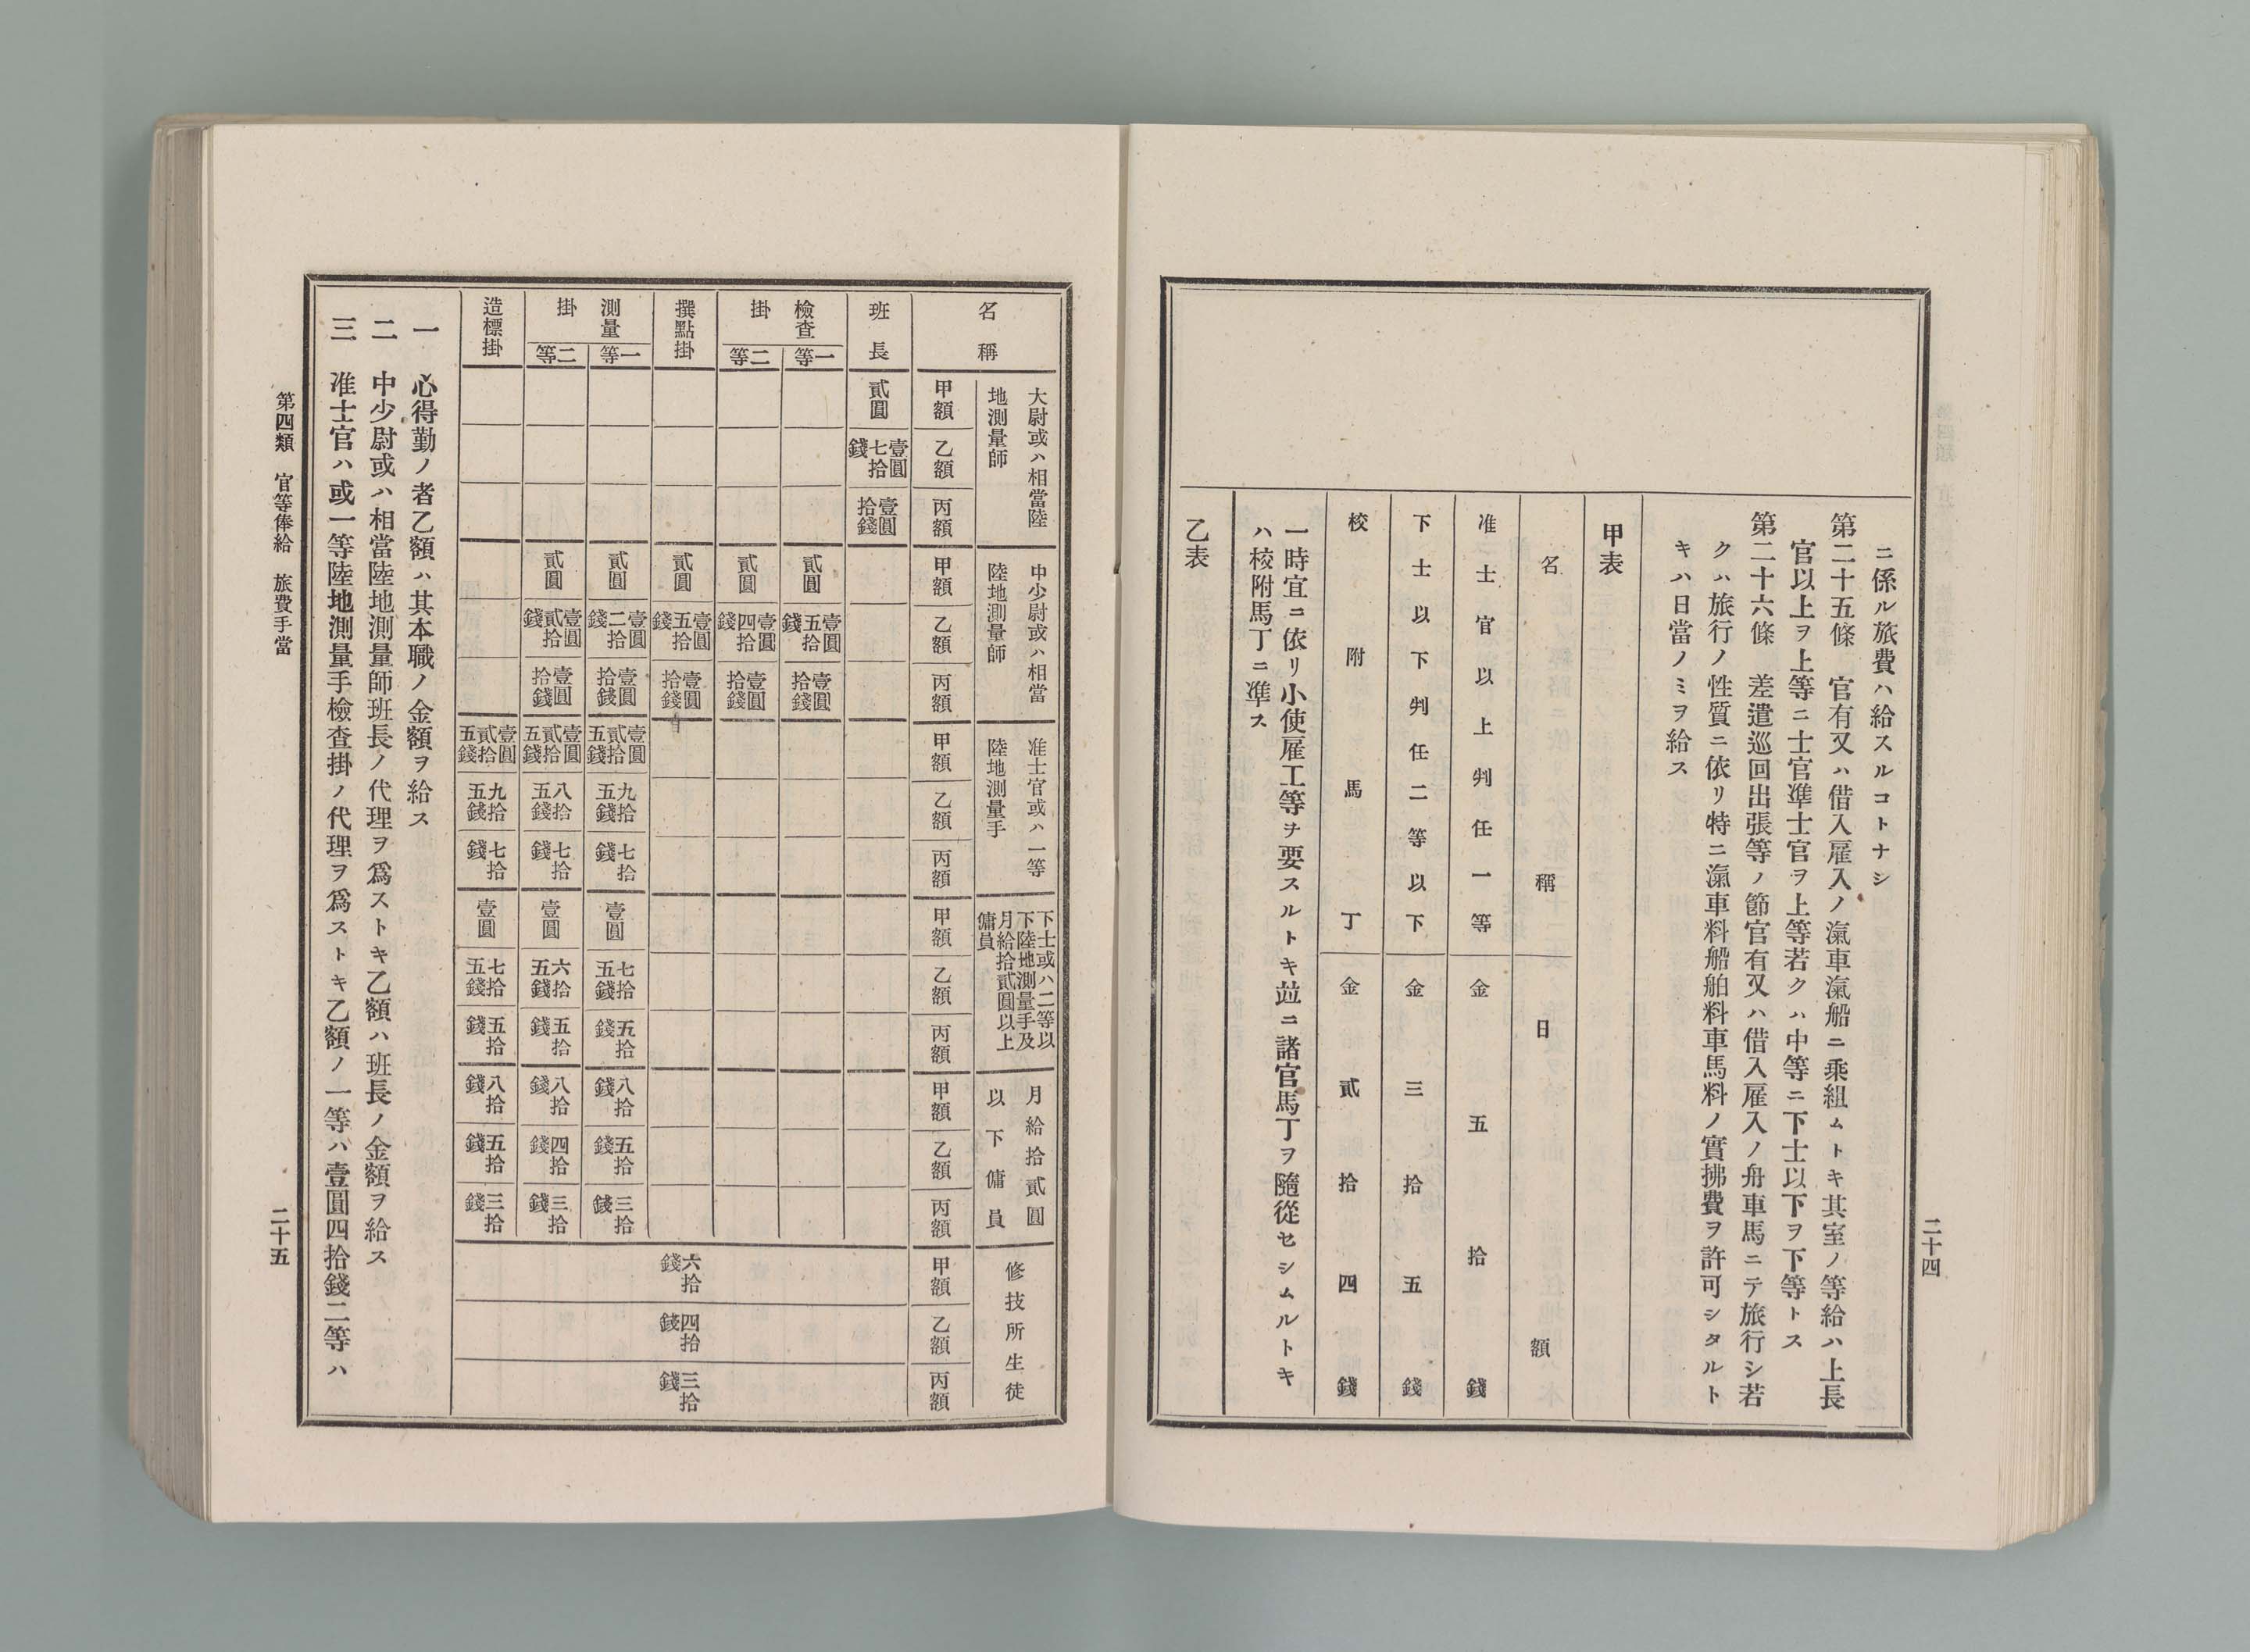 ニ係ル旅費ハ給スルコトナシ
第二十五條　官有又ハ借入雇入ノ滊車滊船ニ乘組ムトキ其室ノ等給ハ上長
官以上ヲ上等ニ士官準士官ヲ上等若クハ中等ニ下士以下ヲ下等トス
第二十六條　差遣巡回出張等ノ節官有又ハ借入雇入ノ舟車馬ニテ旅行シ若
クハ旅行ノ性質ニ依リ特ニ滊車料船舶料車馬料ノ實拂費ヲ許可シタルト
キハ日當ノミヲ給ス
甲表
名稱　日額
准士官以上判任一等　金五拾錢
下士以下判任二等以下　金三拾五錢
校附馬丁　金貳拾四錢
一時宜ニ依リ小使雇工等ヲ要スルトキ竝ニ諸官馬丁ヲ隨從セシムルトキ
ハ校附馬丁ニ準ス
乙表
二十四
名稱
大尉或ハ相當陸
地測量師
甲額　乙額　丙額
中少尉或ハ相當
陸地測量師
甲額　乙額　丙額
准士官或ハ一等
陸地測量手
甲額　乙額　丙額
下士或ハ二等以
下陸地測量手及
月給拾貳圓以上
傭員
甲額　乙額　丙額
月給拾貳圓
以下傭員
甲額　乙額　丙額
修技所生徒
甲額　乙額　丙額
班長　貳圓　壹圓七拾錢　壹圓拾錢
檢查掛
一等　貳圓　壹圓五拾錢　壹圓拾錢
二等　貳圓　壹圓四拾錢　壹圓拾錢
撰點掛　貳圓　壹圓五拾錢　壹圓拾錢
測量掛
一等　貳圓　壹圓二拾錢　壹圓拾錢　壹圓貳拾五錢　九拾五錢　七拾錢　壹圓　七拾五錢　五拾錢　八拾錢　五拾錢　三拾錢
二等　貳圓　壹圓貳拾錢　壹圓拾錢　壹圓貳拾五錢　八拾五錢　七拾錢　壹圓　六拾五錢　五拾錢　八拾錢　四拾錢　三拾錢
造標掛　壹圓貳拾五錢　九拾五錢　七拾錢　壹圓　七拾五錢　五拾錢　八拾錢　五拾錢　三拾錢
六拾錢　四拾錢　三拾錢
一　心得勤ノ者乙額ハ其本職ノ金額ヲ給ス
二　中少尉或ハ相當陸地測量師班長ノ代理ヲ爲ストキ乙額ハ班長ノ金額ヲ給ス
三　准士官ハ或一等陸地測量手檢查掛ノ代理ヲ爲ストキ乙額ノ一等ハ壹圓四拾錢二等ハ
第四類　官等俸給　旅費手當
二十五